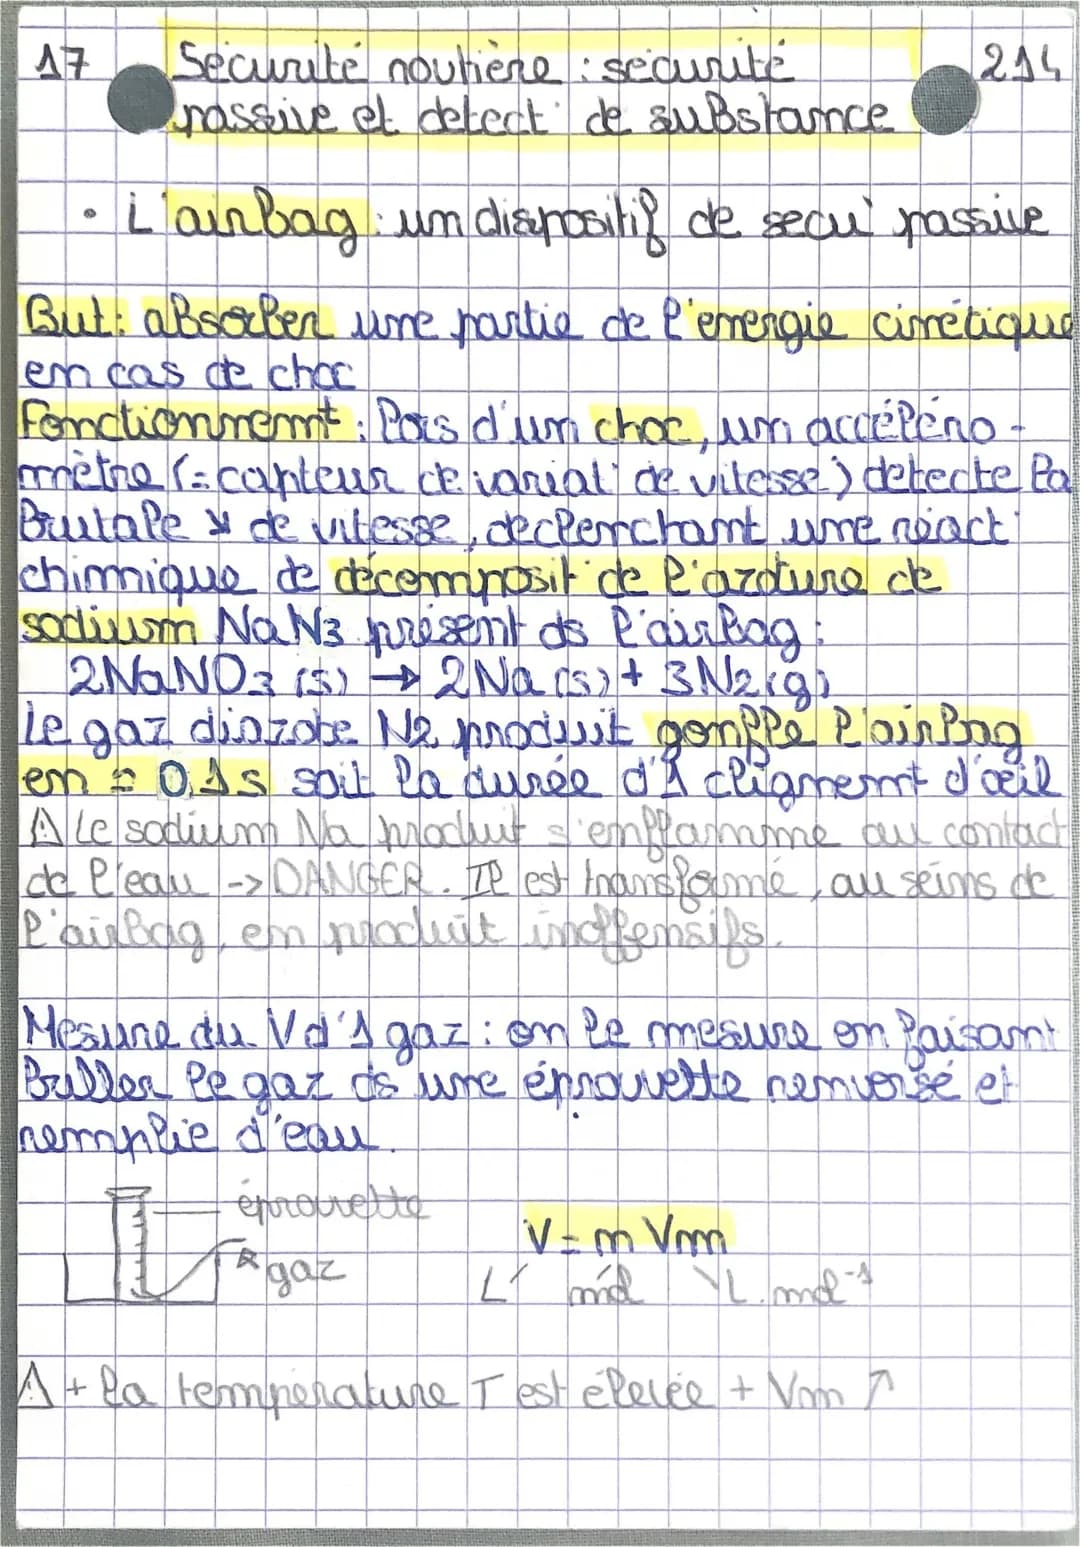 17 Sécurité routière : sécurité 214
passive et detect° de substance
• L'airbag : un dispositif de secu° passive
But : absorber une partie de l'energie cinétique
en cas de choc
Fonctionnemt : lors d'un choc, un accéléro-
mètre (= capteur de variat° de vitesse) detecte la
brutale ↘ de vitesse, declenchant une réact°
chimique de décomposit° de l'azoture de
sodium NaN3 présent ds l'airbag :
2NaNO3 (s) → 2Na (s) + 3N2 (g)
Le gaz diazote N2 produit gonfle l'airbag
en ≃ 0,1s soit la durée d'1 clignemt d'œil
⚠ Le sodium Na produit s'enflamme au contact
de l'eau -> DANGER. Il est transformé, au seins de
l'airbag, en produit inoffensifs.
Mesure du V d'1 gaz : on le mesure en faisant
buller le gaz ds une éprouvette renversé et
remplie d'eau.
éprouvette
gaz
V = n Vm
L mol L.mol-1
⚠ + la température T est élevée + Vm ↗